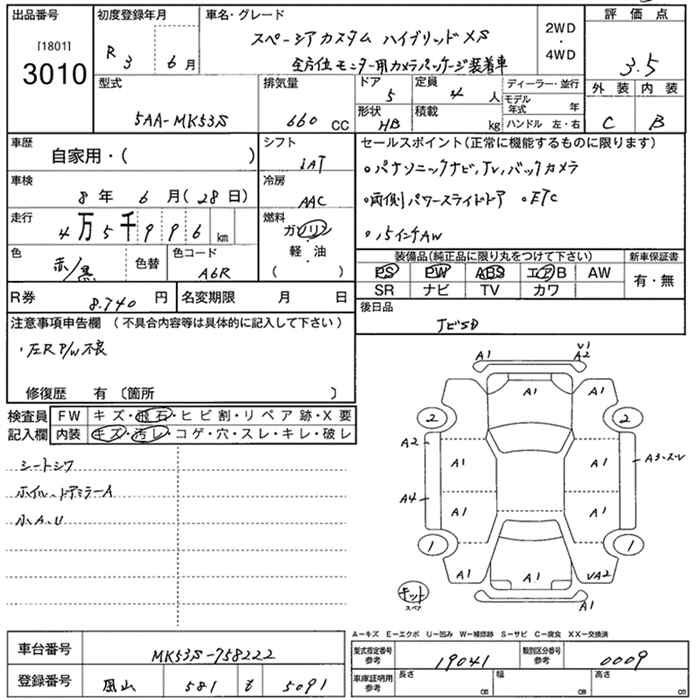 出品番号
[1801]
3010
初度登録年月
R 3 6月
車名・グレード
スペーシアカスタム ハイブリッドXS
全方位モニター用カメラパッケージ装着車
2WD
・
4WD
評価点
3.5
外装 内装
C B
型式
5AA-MK53S
排気量
660 CC
ドア
5
定員
4 人
形状
HB
積載
kg
ディーラー・並行
モデル年式 年
ハンドル 左・右
車歴
自家用・( )
シフト
IAT
車検
8年 6月(28日)
冷房
AAC
走行
4万5千996 km
燃料
ガソリン
軽・油
( )
色
赤/黒
色替
色コード
A6R
R券
8.740 円
名変期限 月 日
セールスポイント(正常に機能するものに限ります)
・パナソニックナビ,TV,バックカメラ
・両側パワースライドドア ・ETC
・15インチAW
装備品(純正品に限り丸をつけて下さい)
PS PW ABS エアB AW
SR ナビ TV カワ
新車保証書
有・無
後日品
ナビSD
注意事項申告欄(不具合内容等は具体的に記入して下さい)
・左R P/W不良
修復歴 有 〔箇所 〕
検査員記入欄
FW キズ・飛石・ヒビ割・リペア跡・X要
内装 キズ・汚レ・コゲ・穴・スレ・キレ・破レ
シートシワ
ホイル、ドアミラーA
小A.U
A1
V1
A2
A1
A1
A1
2
2
A2
A1
A1
A3・スレ
A4
A1
A1
1
1
A1
A1
VA2
キット
スペア
A1
A－キズ E－エクボ U－凹み W－補修跡 S－サビ C－腐食 XX－交換済
車台番号
MK53S-758222
登録番号
岡山 581 も 5091
型式指定番号
参考
19041
類別区分番号
参考
0009
車庫証明用
参考
長さ cm
幅 cm
高さ cm